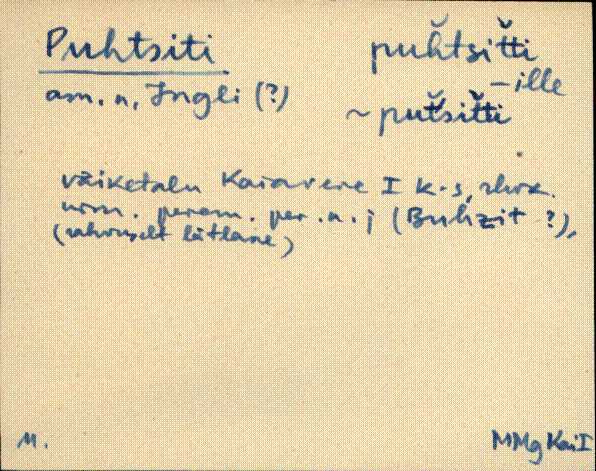 Puhtsiti puȟtsiťťi
–ille
am. n. Ingli (?) ~ puťsiťťi
väiketalu Kaiavere I k-s, rhvx.
nim. peram. per. n. j (Buhzit ?),
(rahvuselt lätlane)
M. MMg KaiI